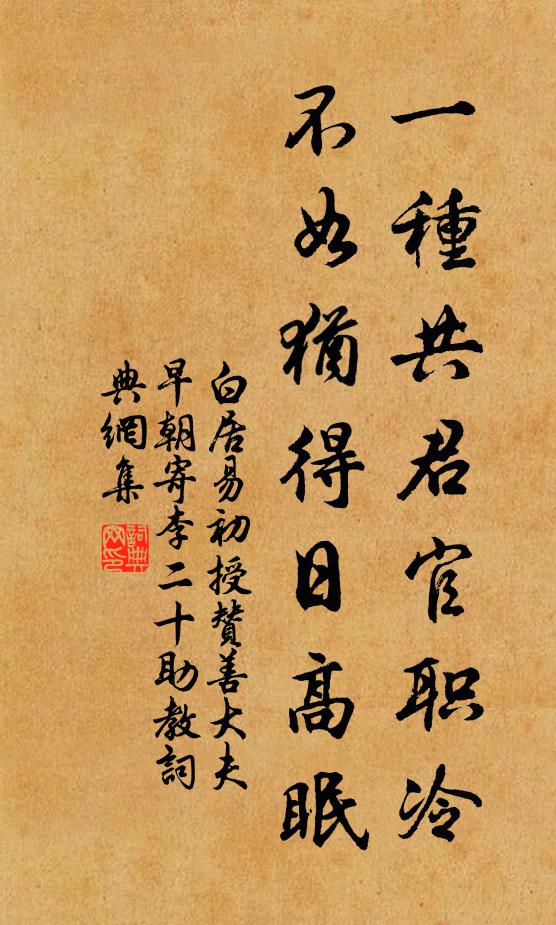 一種共君官职冷
不如猶得日高眠
白居易初授贊善大夫
早朝寄李二十助教詞
典網集
詞典
网印